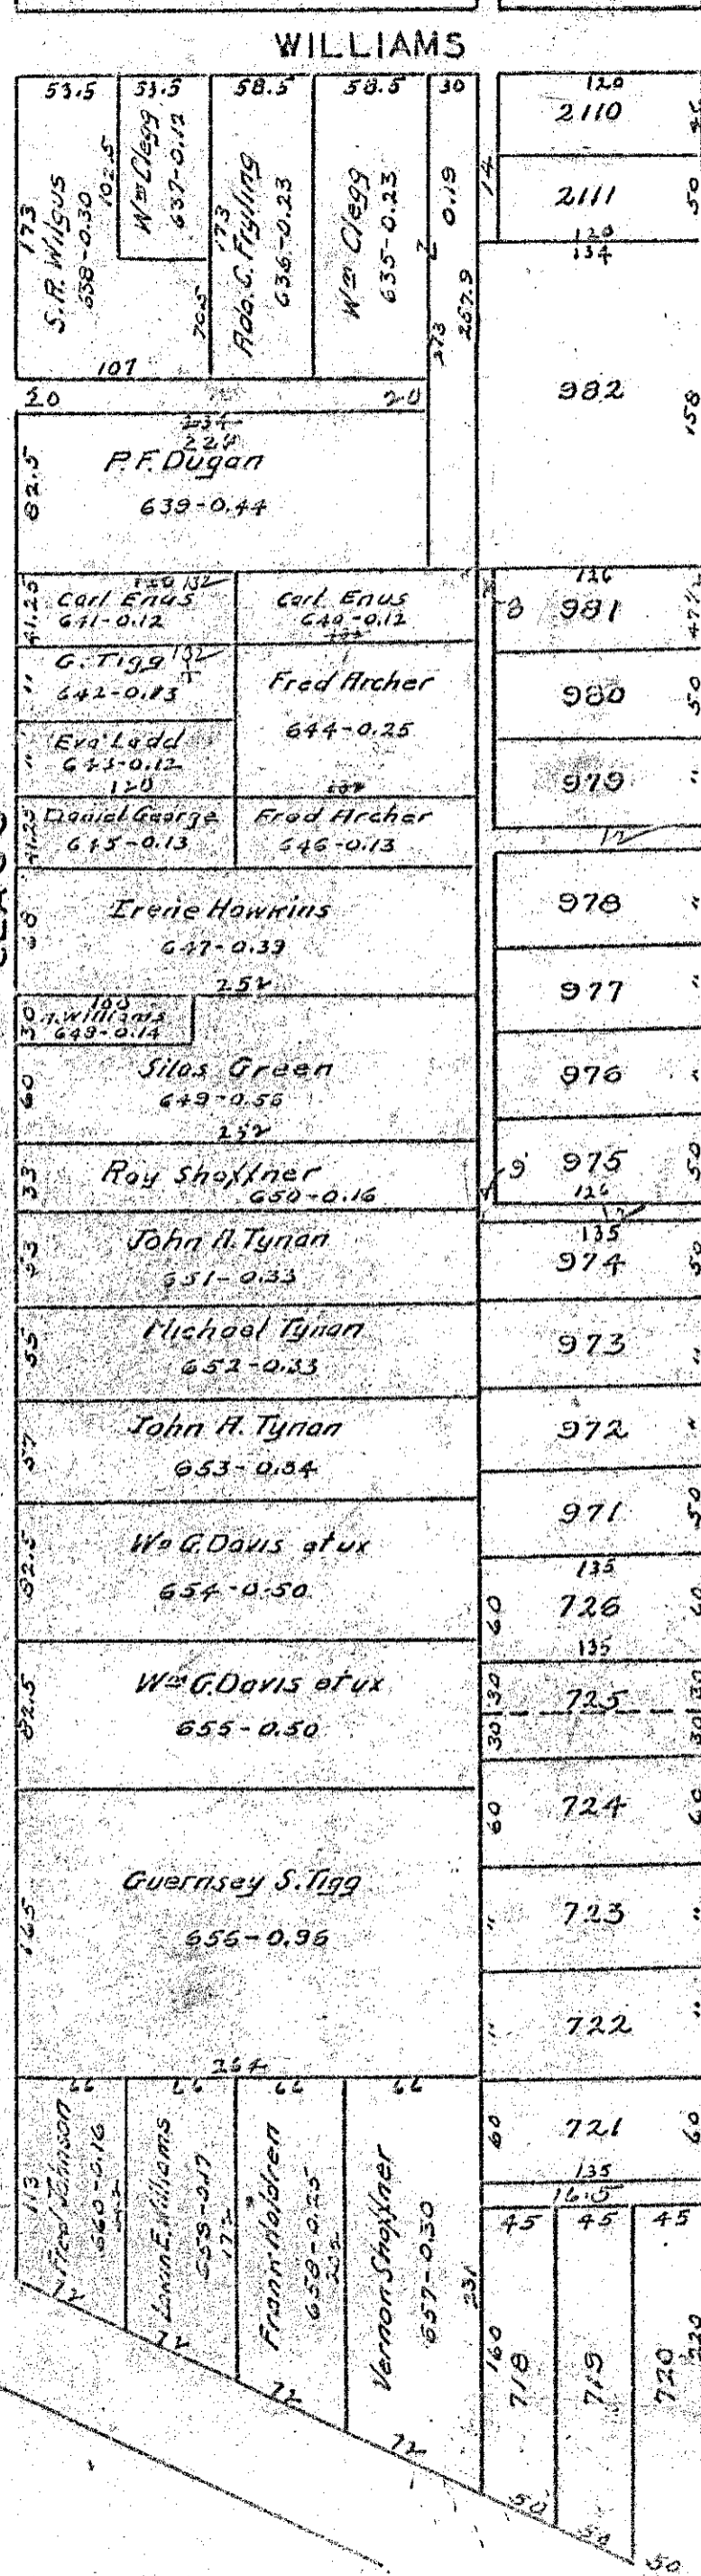 WILLIAMS
53.5
53.5
58.5
58.5
30
173
S.R. Wilgus
638-0.30
102.5
Wm Clegg
637-0.12
70.5
173
Rob. C. Fryling
636-0.23
Wm Clegg
635-0.23
273
0.19
267.9
107
20
20
234
82.5
P.F. Dugan
639-0.44
41.25
132
Carl Enus
641-0.12
Carl Enus
640-0.12
"
G. Tigg 132
642-0.13
Fred Archer
644-0.25
"
Eva Ladd
643-0.12
120
41.25
Daniel George
645-0.13
Fred Archer
646-0.13
68
Irene Hawkins
647-0.39
252
30
100
Williams
60
Silas Green
649-0.56
252
33
Roy Shoffner
650-0.16
53
John A. Tynan
651-0.33
55
Michael Tynan
652-0.33
57
John A. Tynan
653-0.34
82.5
Wm G. Davis et ux
654-0.50
82.5
Wm G. Davis et ux
655-0.50
165
Guernsey S. Tigg
656-0.96
264
66
66
66
66
113
Fred Johnson
660-0.16
72
Williams
172
72
Frank Waldren
658-0.25
72
Vernon Shoffner
657-0.30
231
72
14
120
2110
2111
50
120
134
982
158
126
8
981
47 1/2
980
50
979
"
12
978
"
977
"
976
"
9
975
50
126
12
135
974
50
973
"
972
"
971
50
135
60
726
60
135
30
725
30
30
30
60
724
60
"
723
"
"
722
"
60
721
60
135
16.5
45
45
45
160
718
719
720
220
50
50
50